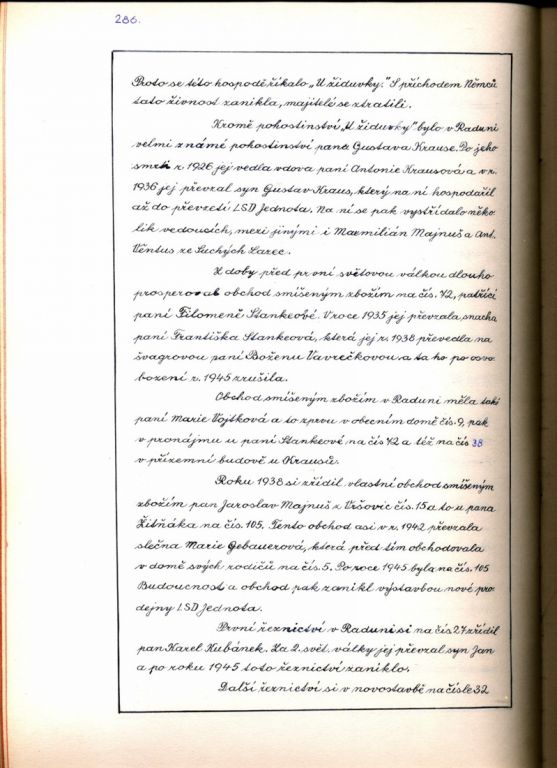 286.
Proto se této hospodě říkalo „U židuvky." S příchodem Němců
tato živnost zanikla, majitelé se ztratili.
Kromě pohostinství „U židuvky" bylo v Raduni
velmi známé pohostinství pana Gustava Krause. Po jeho
smrti r. 1926 jej vedla vdova paní Antonie Krausová a v r.
1936 jej převzal syn Gustav Kraus, který na ní hospodařil
až do převzetí LSD Jednota. Na ní se pak vystřídalo něko
lik vedoucích, mezi jinými i Maxmilián Majnuš a Ant.
Věntus ze Suchých Lazec.
Z doby před první světovou válkou dlouho
prosperoval obchod smíšeným zbožím na čís. 42, patřící
paní Filomeně Stankeové. V roce 1935 jej převzala snacha
paní Františka Stankeová, která jej r. 1938 převedla na
švagrovou paní Boženu Vavrečkovou a ta ho po osvo
bození r. 1945 zrušila.
Obchod smíšeným zbožím v Raduni měla také
paní Marie Vojtková a to zprvu v obecním domě čís. 9, pak
v pronájmu u paní Stankeové na čís 42 a též na čís 38
v přízemní budově u Krausů.
Roku 1938 si zřídil vlastní obchod smíšeným
zbožím pan Jaroslav Majnuš z Vršovic čís. 15 a to u pana
Žitňáka na čís. 105. Tento obchod asi v r. 1942 převzala
slečna Marie Gebauerová, která před tím obchodovala
v domě svých rodičů na čís. 5. Po roce 1945 byla na čís. 105
Budoucnost a obchod pak zanikl výstavbou nové pro
dejny LSD Jednota.
První řeznictví v Raduni si na čís. 27 zřídil
pan Karel Kubánek. Za 2. svět. války jej převzal syn Jan
a po roku 1945 toto řeznictví zaniklo.
Další řeznictví si v novostavbě na čísle 32